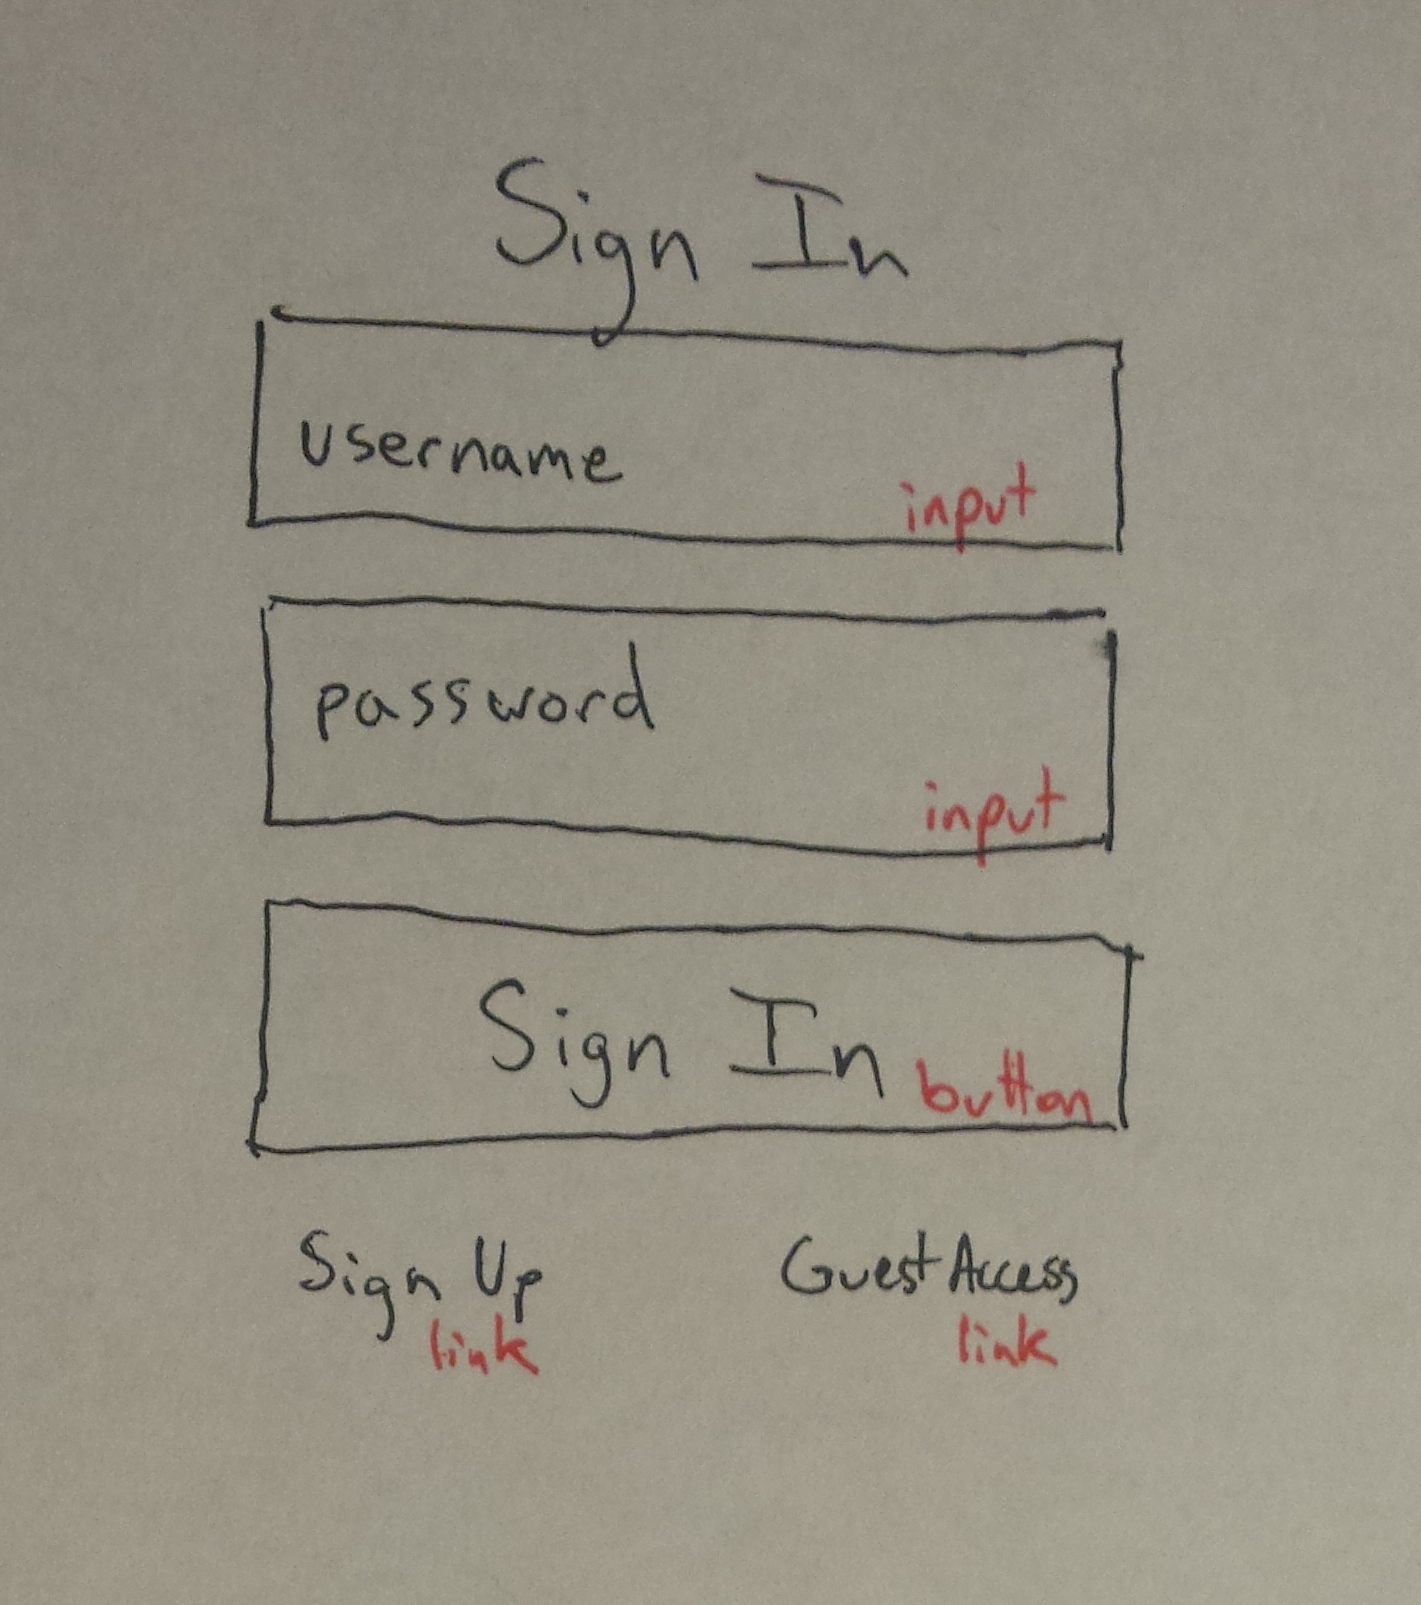 Sign In
username
input
password
input
Sign In button
Sign Up Guest Access
link link